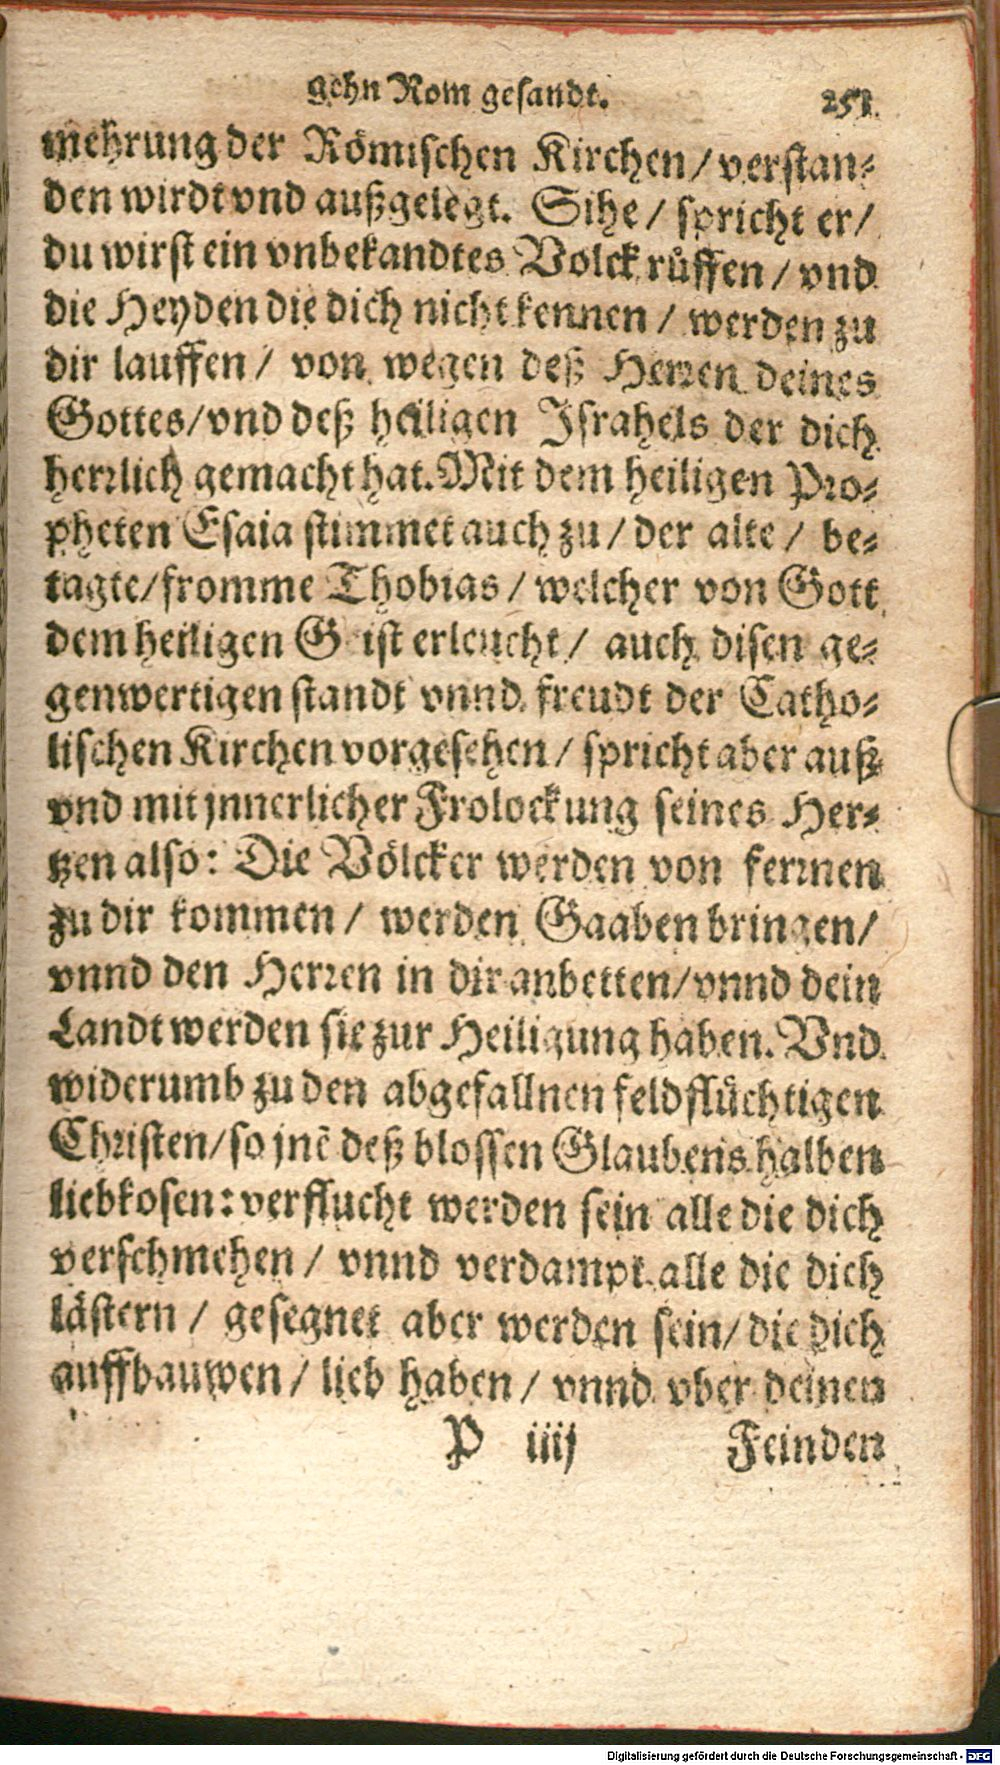 gehn Rom gesandt. 251.
mehrung der Römischen Kirchen/ verstan⸗
den wirdt vnd außgelegt. Sihe/ spricht er/
du wirst ein vnbekandtes Volck růffen/ vnd
die Heyden die dich nicht kennen/ werden zu
dir lauffen/ von wegen deß Herren deines
Gottes/ vnd deß heiligen Israhels der dich
herrlich gemacht hat. Mit dem heiligen Pro⸗
pheten Esaia stimmet auch zu/ der alte/ be⸗
tagte/ fromme Thobias/ welcher von Gott
dem heiligen G ist erleucht/ auch disen ge⸗
genwertigen standt vnnd freudt der Catho⸗
lischen Kirchen vorgesehen/ spricht aber auß
vnd mit jnnerlicher Frolockung seines Her⸗
tzen also: Die Völcker werden von ferrnen
zu dir kommen/ werden Gaaben bringen/
vnnd den Herren in dir anbetten/ vnnd dein
Landt werden sie zur Heiligung haben. Vnd
widerumb zu den abgefallnen feldflüchtigen
Christen/ so jnē deß blossen Glaubens halben
liebkosen: verflucht werden sein alle die dich
verschmehen/ vnnd verdampt alle die dich
lästern/ gesegnet aber werden sein/ die dich
auffbauwen/ lieb haben/ vnnd vber deinen
P iiij Feinden
Digitalisierung gefördert durch die Deutsche Forschungsgemeinschaft - DFG